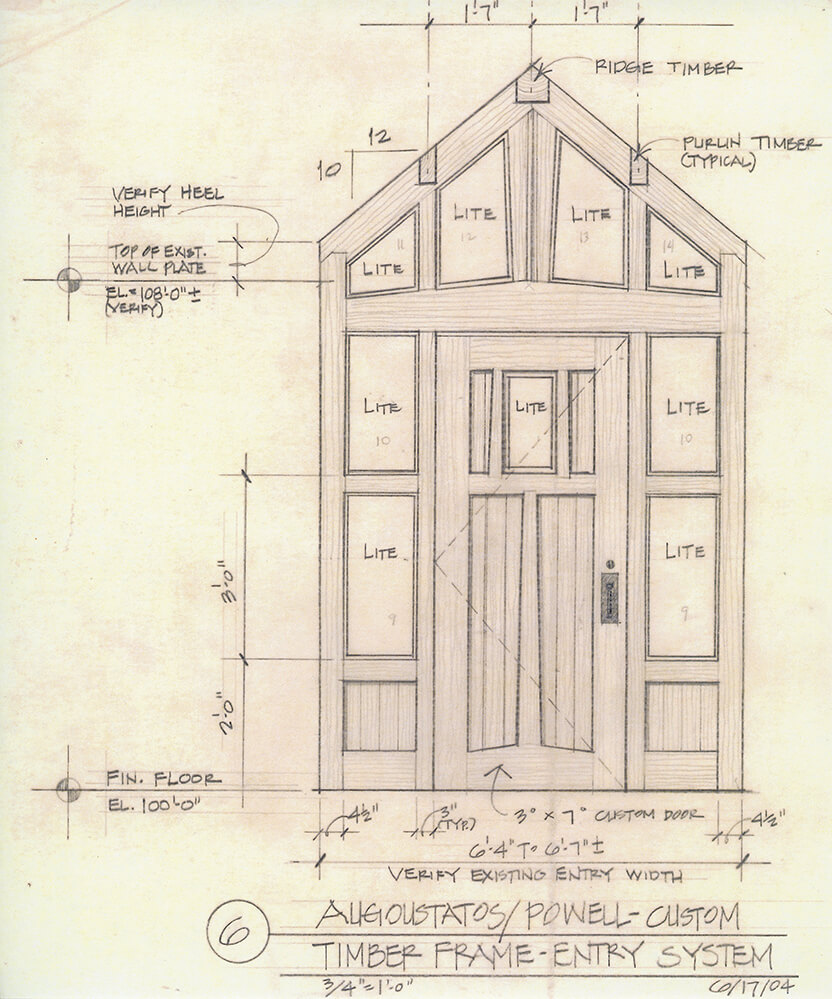 1'-7" 1'-7"
RIDGE TIMBER
12
10
PURLIN TIMBER
(TYPICAL)
VERIFY HEEL
HEIGHT
TOP OF EXIST.
WALL PLATE
EL.=108'-0" ±
(VERIFY)
LITE LITE
12 13
11 14
LITE LITE
LITE LITE LITE
10 10
LITE LITE
9 9
3'-0"
2'-0"
FIN. FLOOR
EL. 100'-0"
4½" 3" 3° x 7° CUSTOM DOOR 4½"
(TYP.)
6'-4" TO 6'-7" ±
VERIFY EXISTING ENTRY WIDTH
6 AUGOUSTATOS/POWELL-CUSTOM
TIMBER FRAME-ENTRY SYSTEM
3/4"=1'-0" 6/17/04